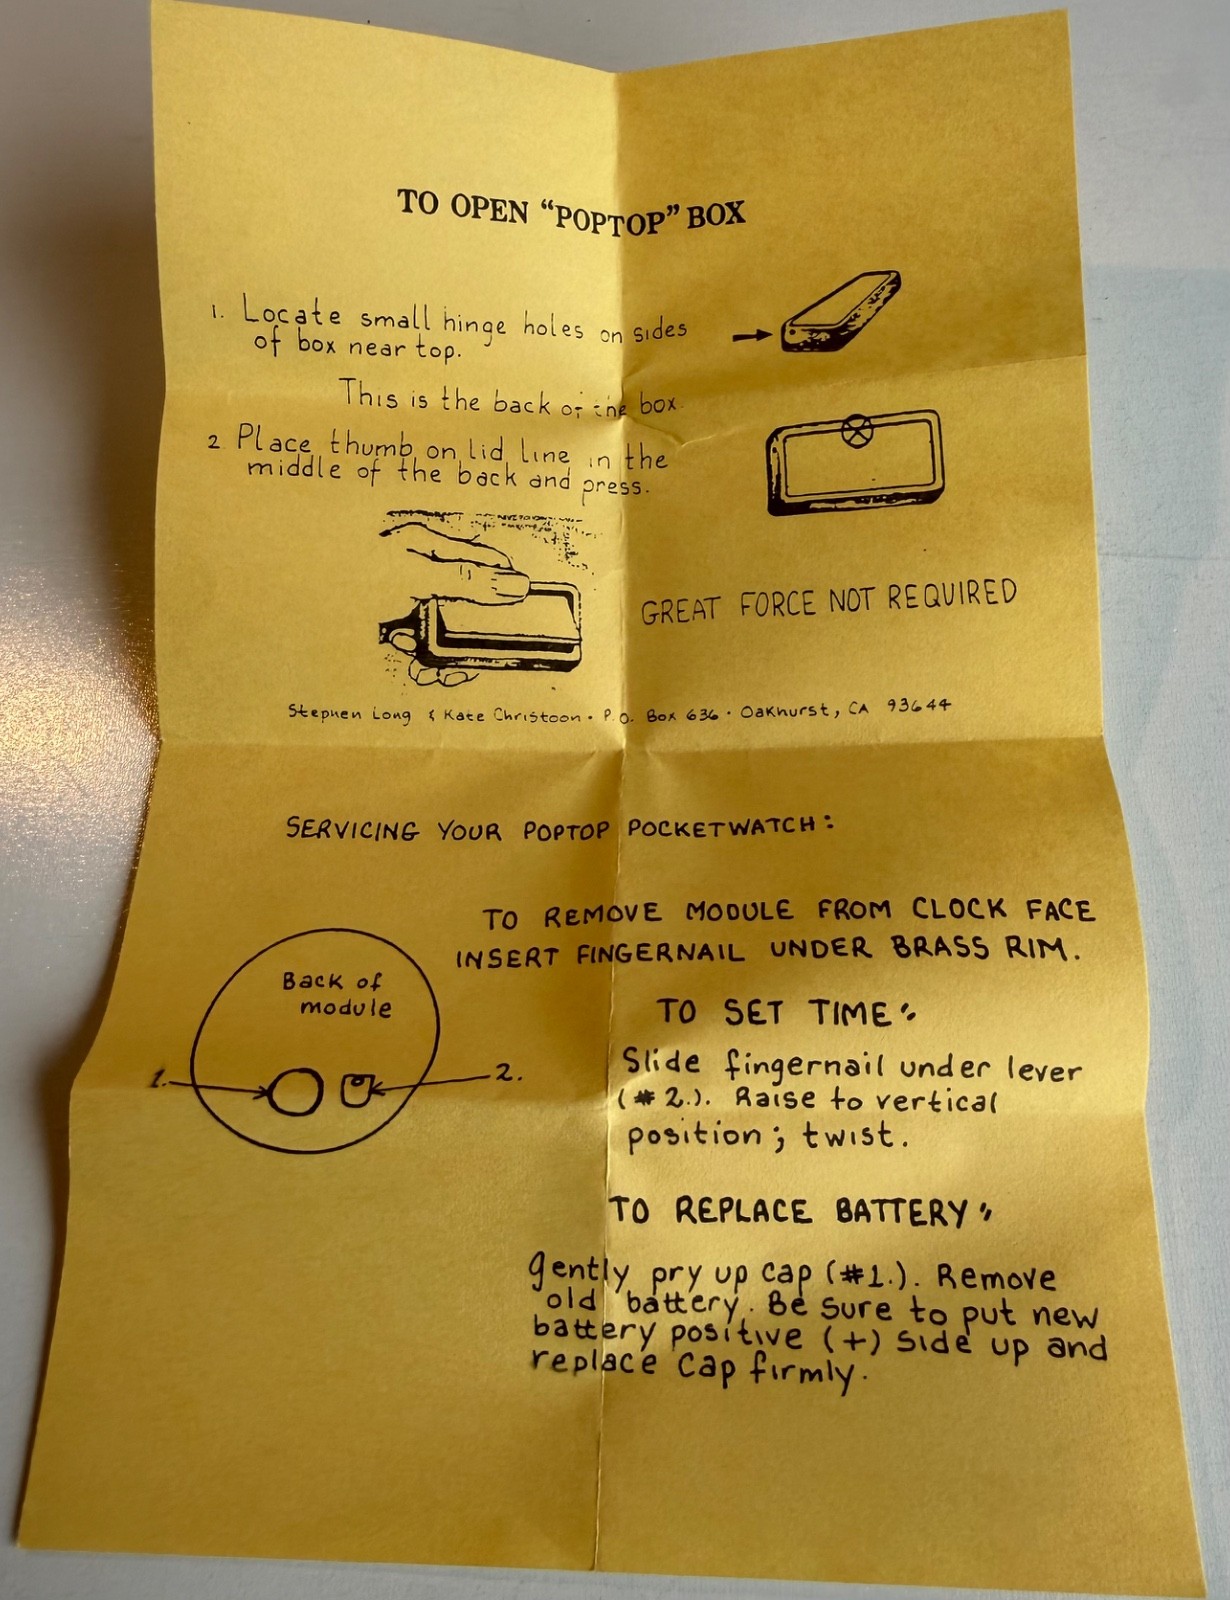 TO OPEN “POPTOP” BOX
1. Locate small hinge holes on sides
of box near top.
This is the back of the box.
2 Place thumb on lid line in the
middle of the back and press.
GREAT FORCE NOT REQUIRED
Stephen Long & Kate Christoon • P.O. Box 636 • Oakhurst, CA 93644
SERVICING YOUR POPTOP POCKETWATCH:
TO REMOVE MODULE FROM CLOCK FACE
INSERT FINGERNAIL UNDER BRASS RIM.
Back of
module
1.
2.
TO SET TIME:
Slide fingernail under lever
(#2.). Raise to vertical
position; twist.
TO REPLACE BATTERY:
gently pry up cap (#1.). Remove
old battery. Be sure to put new
battery positive (+) side up and
replace cap firmly.